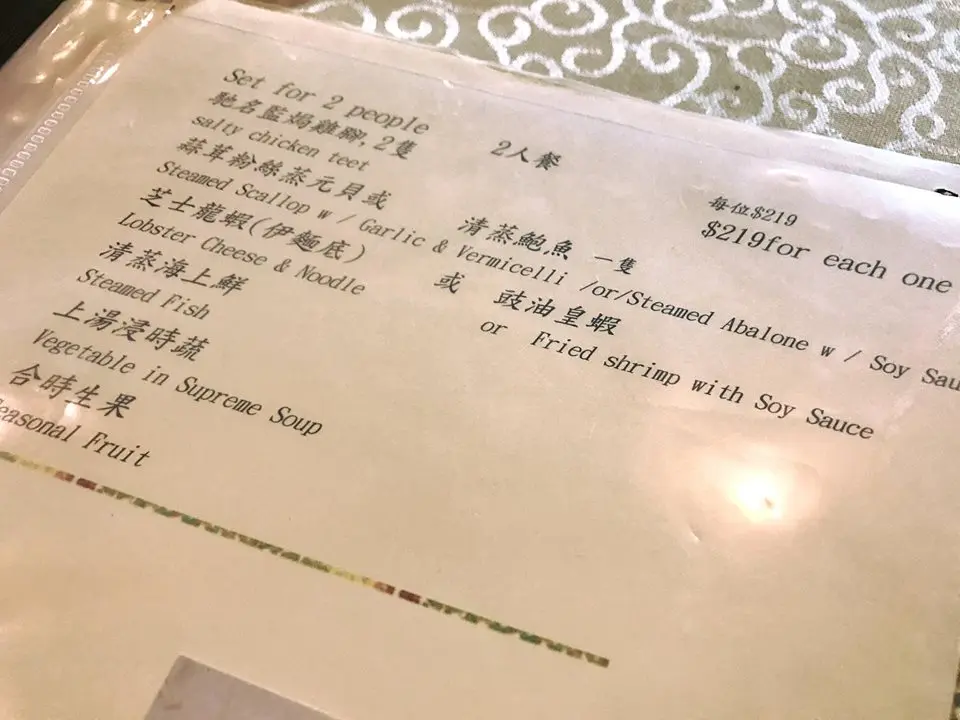 Set for 2 people 2人餐 每位$219
馳名監焗雞腳,2隻 $219for each one
salty chicken teet
蒜茸粉絲蒸元貝或 清蒸鮑魚 一隻
Steamed Scallop w / Garlic & Vermicelli /or/Steamed Abalone w / Soy Sau
芝士龍蝦(伊麵底) 或 豉油皇蝦
Lobster Cheese & Noodle or Fried shrimp with Soy Sauce
清蒸海上鮮
Steamed Fish
上湯浸時蔬
Vegetable in Supreme Soup
合時生果
Seasonal Fruit